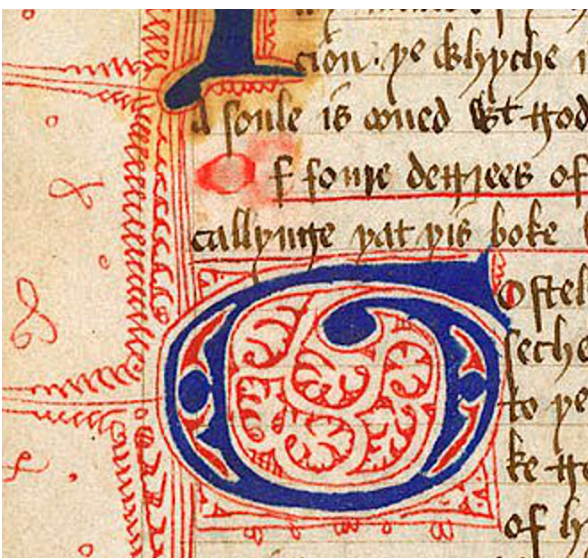 cion · ye whyche i
A soule is oned wt god
Of foure degrees of
callynge yat yis boke
Gostel
seche
to ye
ke
of